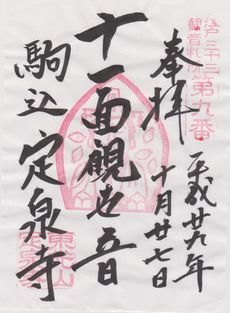 江戸三十三
観音札所
第九番
奉拝
平成廿九年
十月廿七日
十一面観世音
駒込
定泉寺